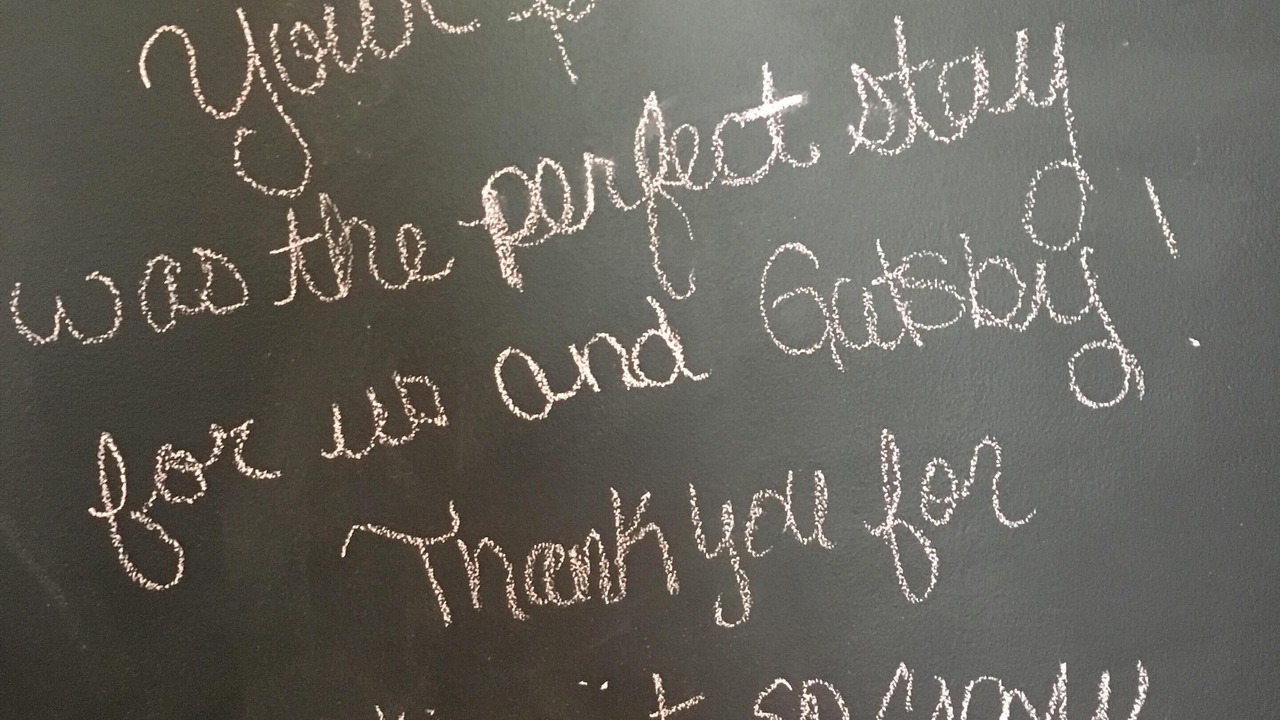 Your
was the perfect stay
for us and Gatsby!
Thank you for
it so